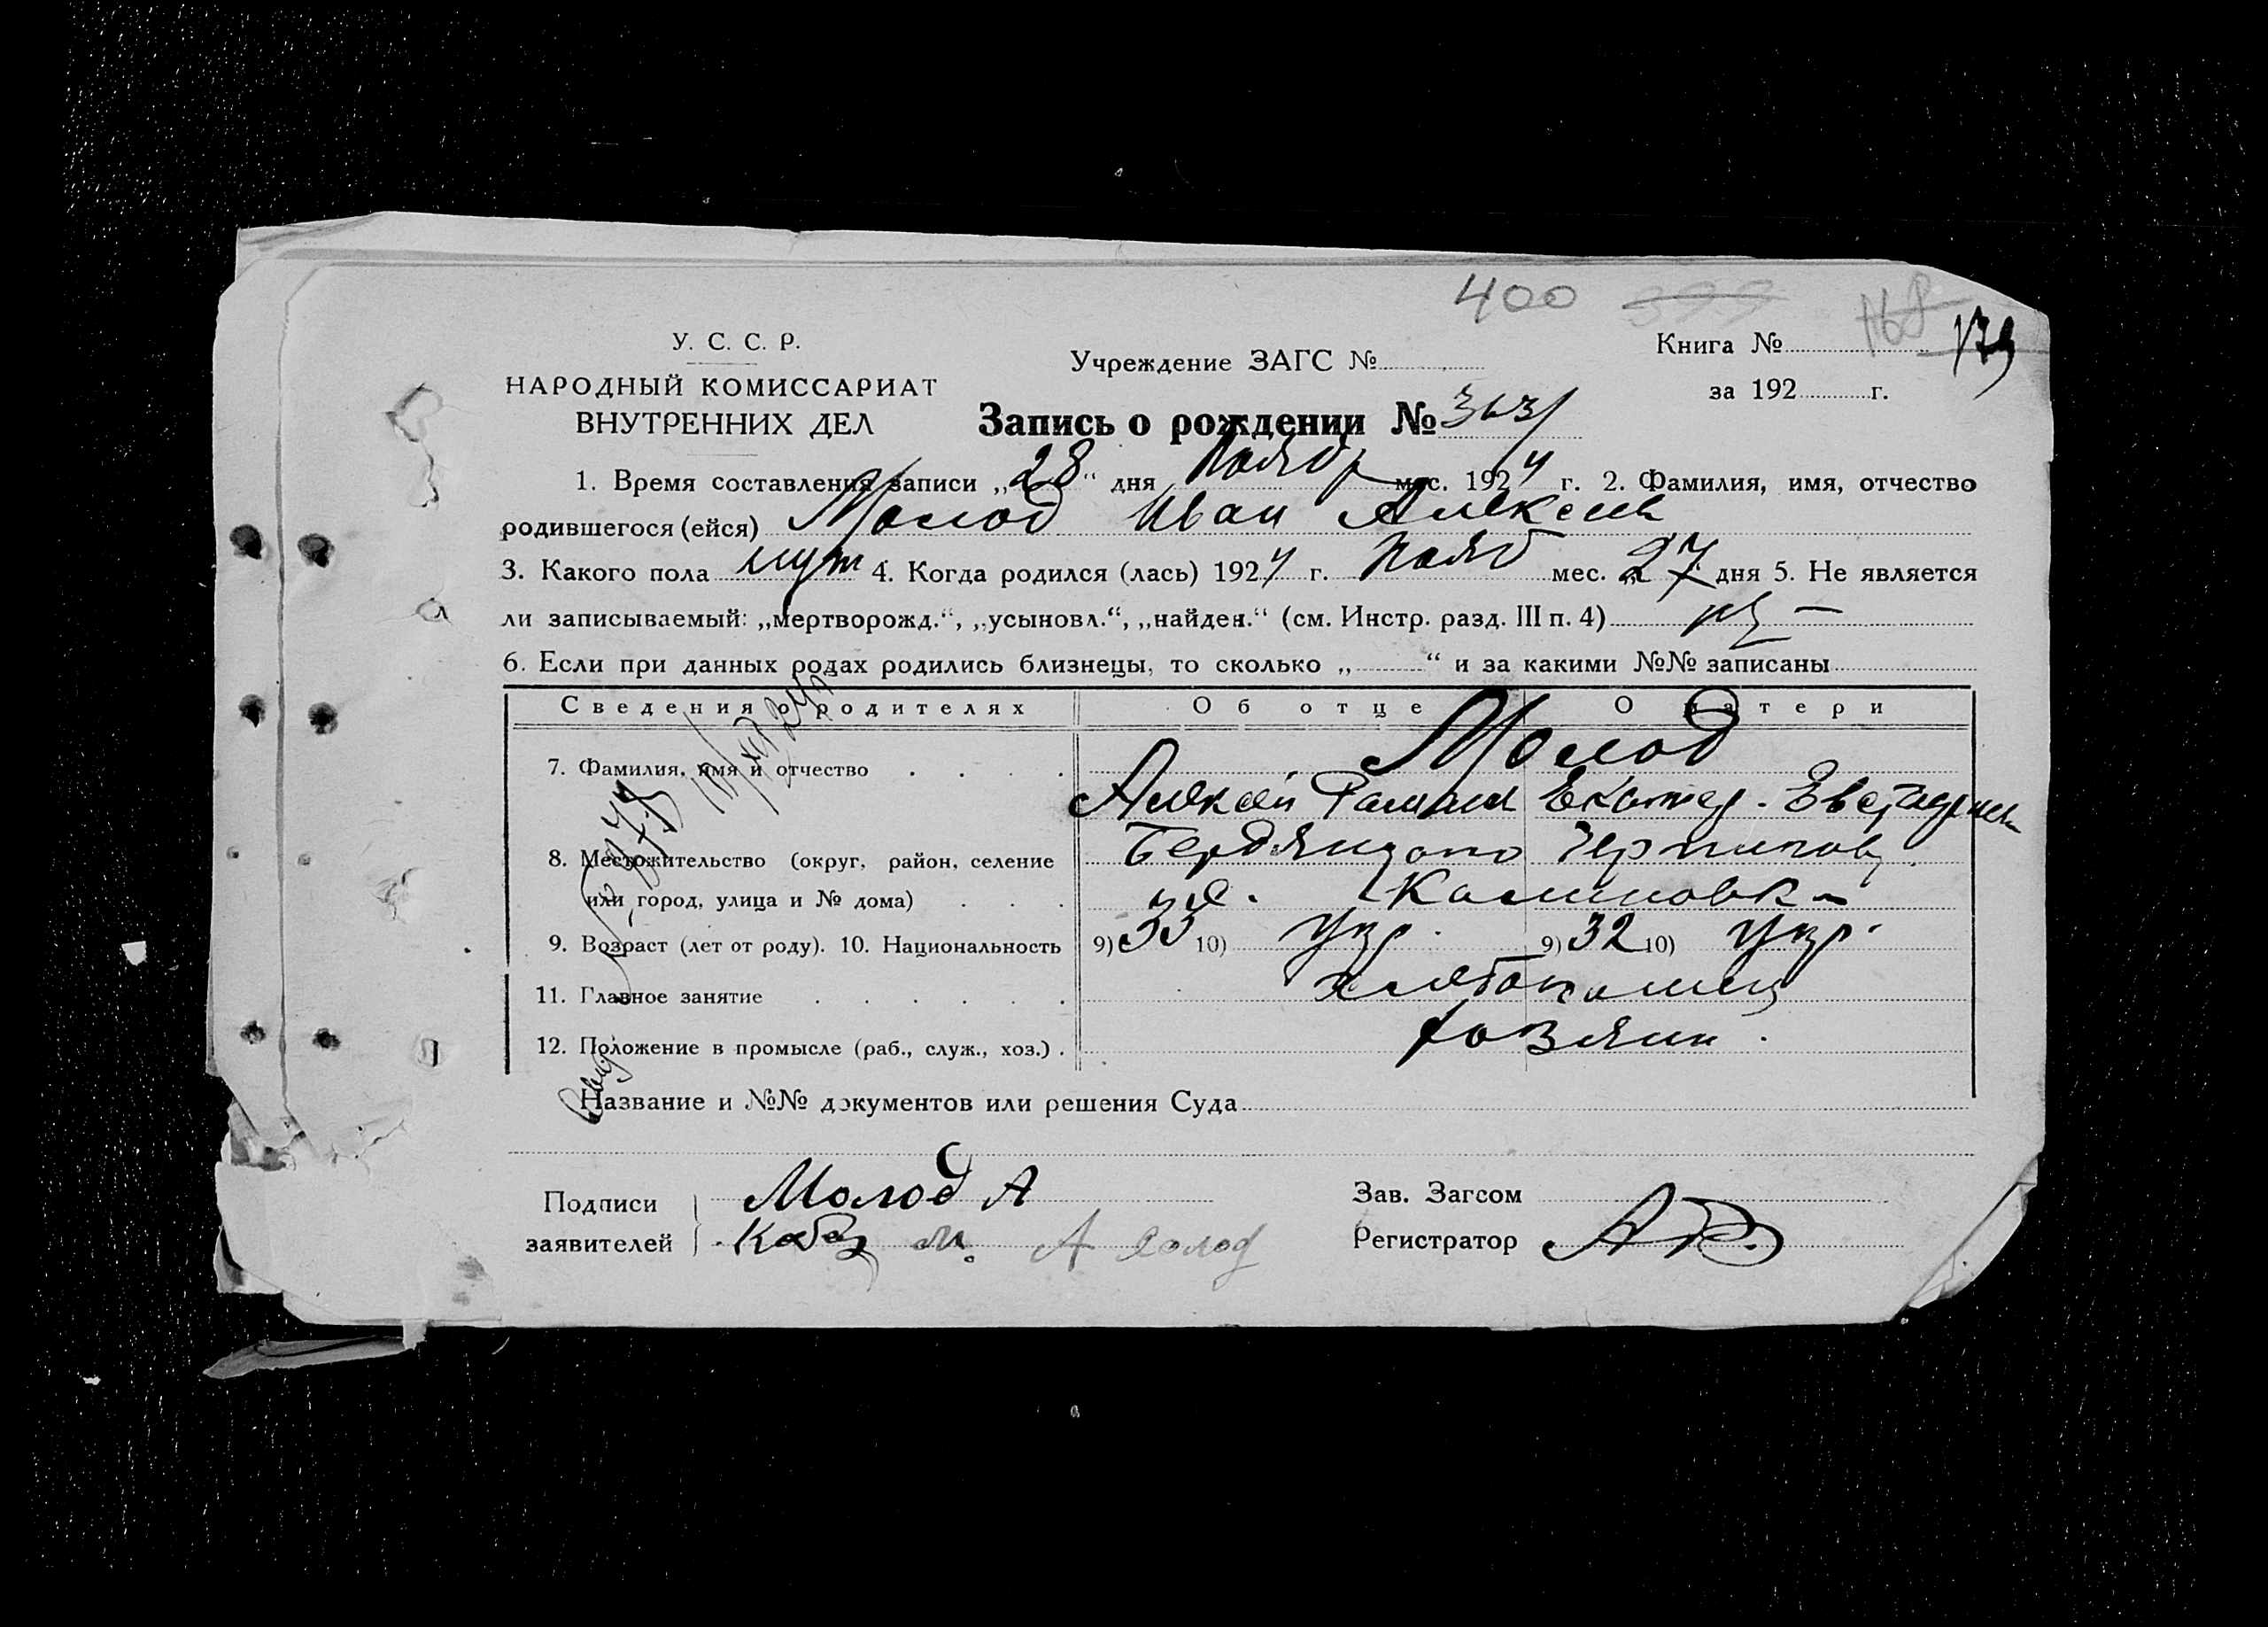 400 399 168 139
У. С. С. Р.
НАРОДНЫЙ КОМИССАРИАТ
ВНУТРЕННИХ ДЕЛ
Учреждение ЗАГС №
Книга №
за 192 г.
Запись о рождении № 363
1. Время составления записи „28“ дня Ноябр мес. 1924 г. 2. Фамилия, имя, отчество
родившегося (ейся) Молод Иван Алексеев
3. Какого пола муж 4. Когда родился (лась) 1924 г. Нояб мес. 27 дня 5. Не является
ли записываемый: „мертворожд.“, „усыновл.“, „найден.“ (см. Инстр. разд. III п. 4)
6. Если при данных родах родились близнецы, то сколько „ “ и за какими №№ записаны
Сведения о родителях Об отце О матери
7. Фамилия, имя и отчество Молод
Алексей Роман Екатер. Евстафиев
8. Местожительство (округ, район, селение Бердянского Черниговск
или город, улица и № дома) с. Калиновк
9. Возраст (лет от роду). 10. Национальность 9) 33 10) Укр. 9) 32 10) Укр.
11. Главное занятие хлебопашец
12. Положение в промысле (раб., служ., хоз.) хозяин.
Название и №№ документов или решения Суда
Подписи заявителей
Молод А
А Молод
Зав. Загсом
Регистратор